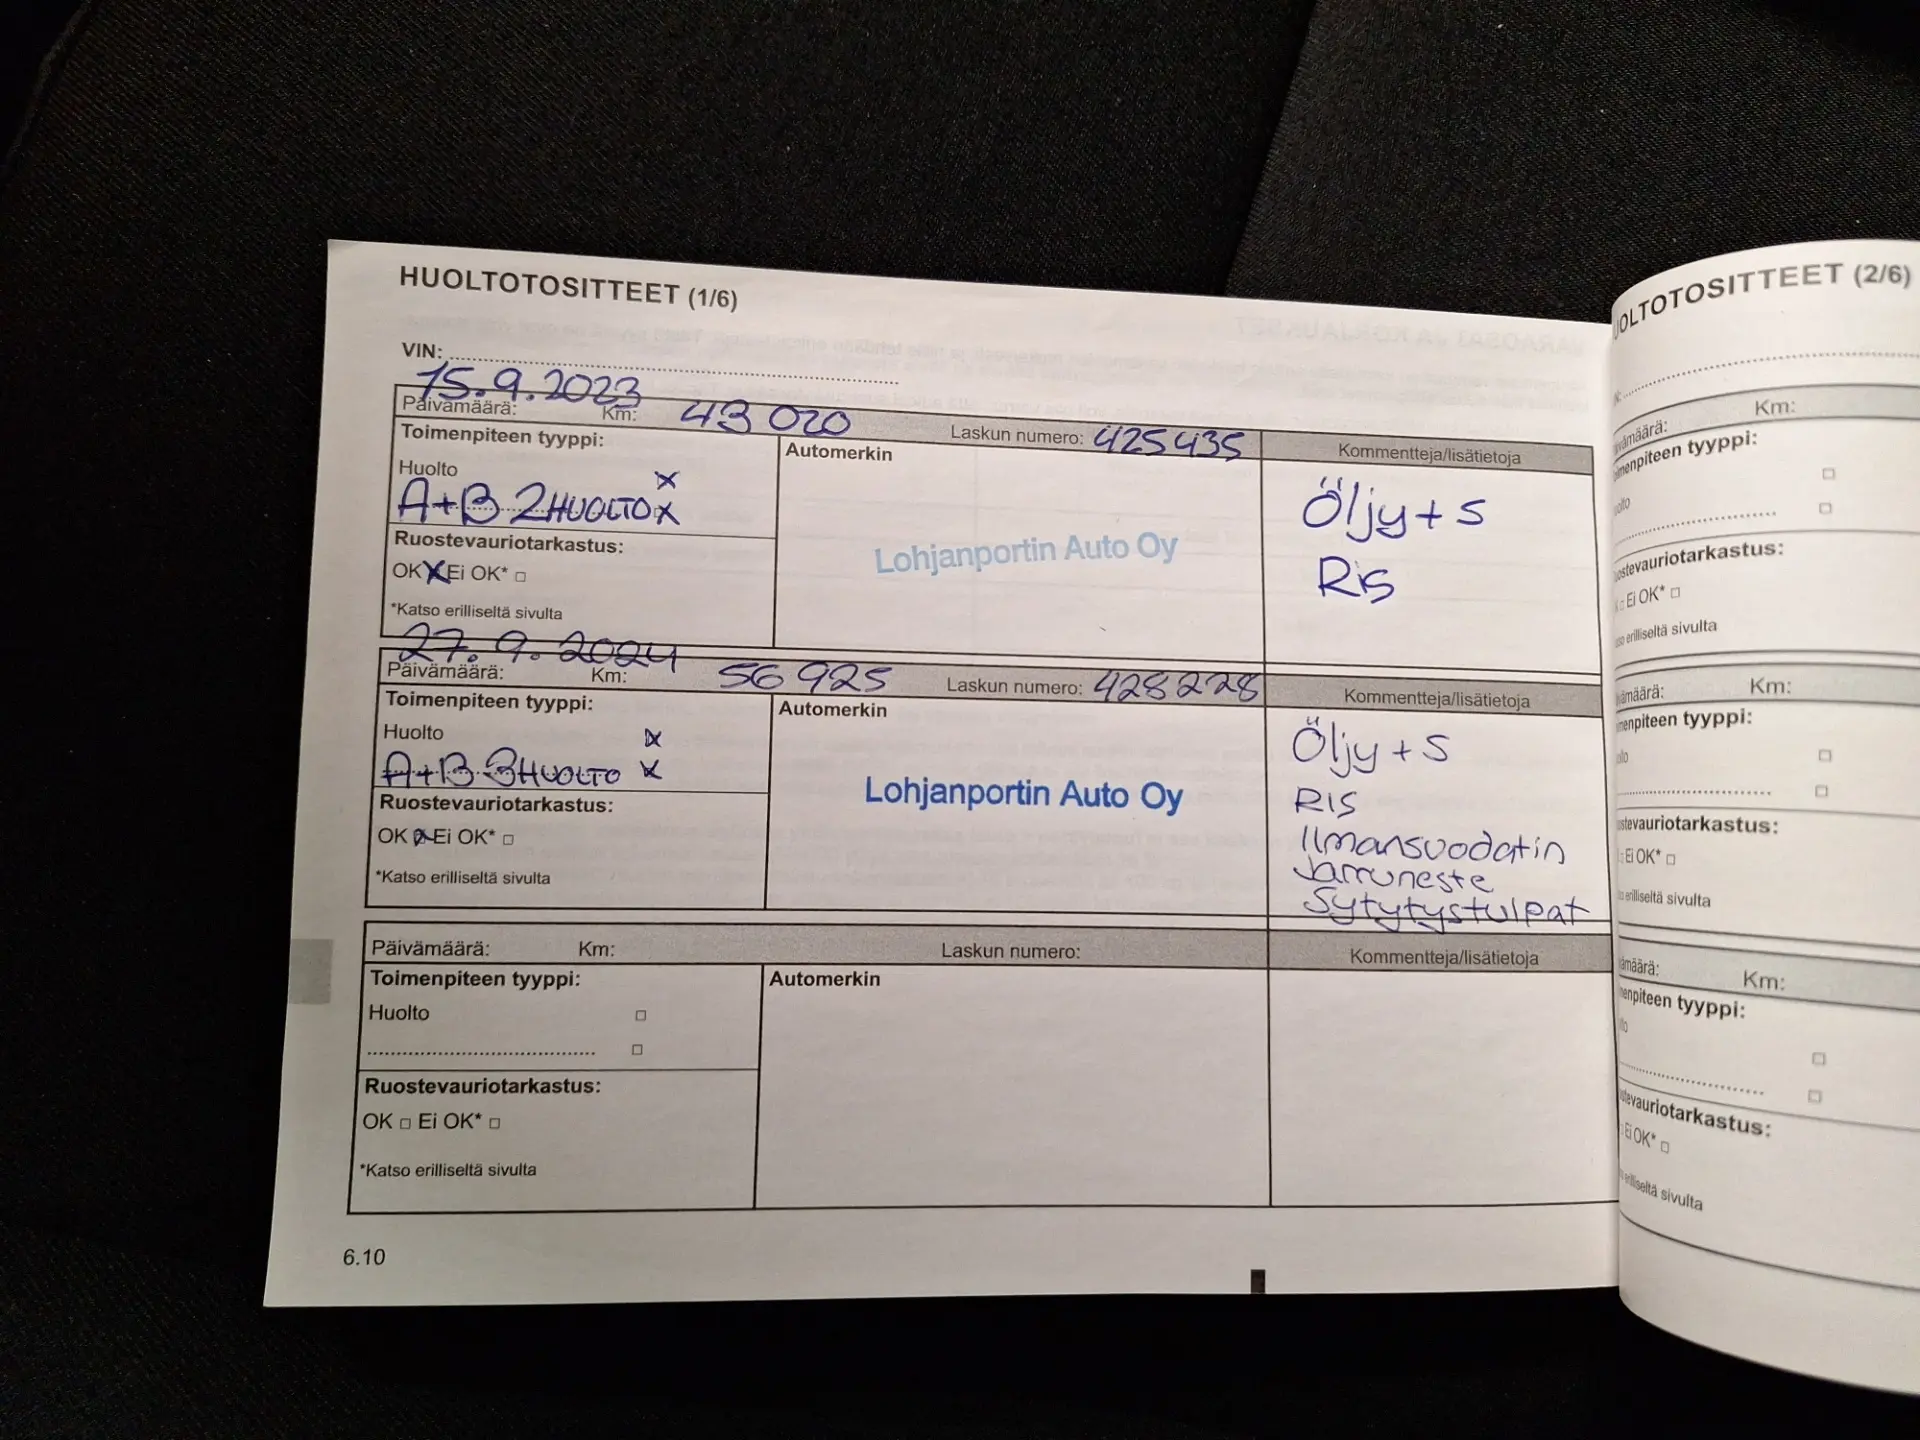 HUOLTOTOSITTEET (1/6)
VIN:
15.9.2023
Päivämäärä: Km: 43 020 Laskun numero: 425435 Kommentteja/lisätietoja
Toimenpiteen tyyppi:
Huolto x
A+B 2HUOLTO x
Automerkin
Lohjanportin Auto Oy
Öljy + S
RIS
Ruostevauriotarkastus:
OK X Ei OK* □
*Katso erilliseltä sivulta
27.9.2024
Päivämäärä: Km: 56 925 Laskun numero: 428228 Kommentteja/lisätietoja
Toimenpiteen tyyppi:
Huolto x
A+B 3HUOLTO x
Automerkin
Lohjanportin Auto Oy
Öljy + S
RIS
Ilmansuodatin
Jarruneste
Sytytystulpat
Ruostevauriotarkastus:
OK x Ei OK* □
*Katso erilliseltä sivulta
Päivämäärä: Km: Laskun numero: Kommentteja/lisätietoja
Toimenpiteen tyyppi:
Huolto □
□
Automerkin
Ruostevauriotarkastus:
OK □ Ei OK* □
*Katso erilliseltä sivulta
6.10
OLTOTOSITTEET (2/6)
Km:
enpiteen tyyppi:
stevauriotarkastus:
Ei OK* □
erilliseltä sivulta
Km:
enpiteen tyyppi:
stevauriotarkastus:
Ei OK* □
erilliseltä sivulta
Km:
enpiteen tyyppi:
evauriotarkastus:
Ei OK* □
erilliseltä sivulta